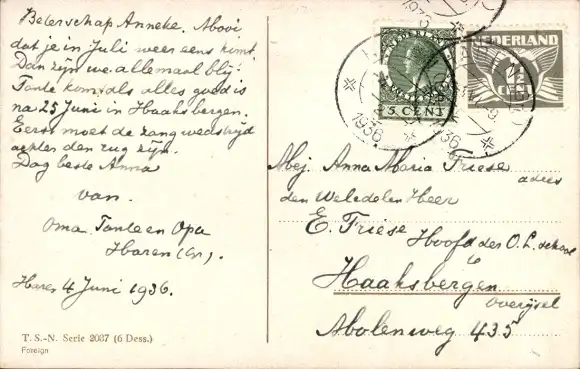 Beterschap Anneke, Mooi
dat je in Juli weer eens komt
Dan zijn we allemaal blij.
Tante komt als alles goed is
na 25 Juni in Haaksbergen.
Eerst moet de zangwedstrijd
achter den rug zijn.
Dag beste Anna
van
Oma Tante en Opa
Haren (Gr).
Haren 4 Juni 1936.
T. S.-N. Serie 2037 (6 Dess.)
Foreign
5 CENT
NEDERLAND
1936
Mej. Anna Maria Friese
adres
den Weledelen Heer
E. Friese Hoofd der O. L. school
Haaksbergen
Overijsel
Molenweg 435